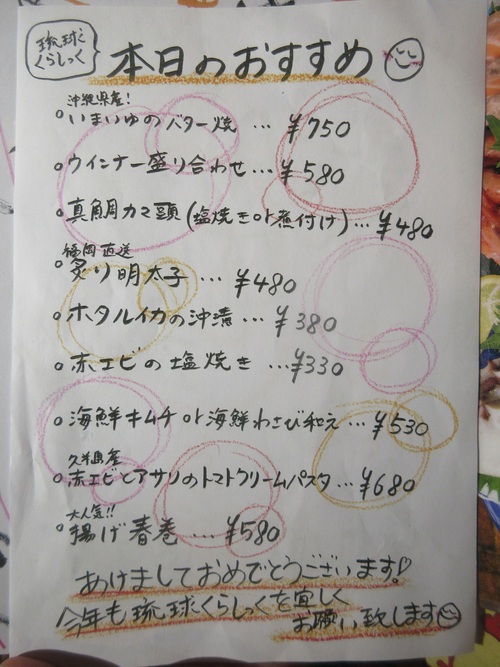 琉球
くらしっく
本日のおすすめ
沖縄県産!
。いまいゆのバター焼 … ¥750
。ウインナー盛り合わせ … ¥580
。真鯛カマ頭(塩焼きor煮付け) … ¥480
福岡直送
。炙り明太子 … ¥480
。ホタルイカの沖漬 … ¥380
。赤エビの塩焼き … ¥330
。海鮮キムチor海鮮わさび和え … ¥530
久米島産
。赤エビとアサリのトマトクリームパスタ … ¥680
大人気!!
。揚げ春巻 … ¥580
あけましておめでとうございます!
今年も琉球くらしっくを宜しく
お願い致します